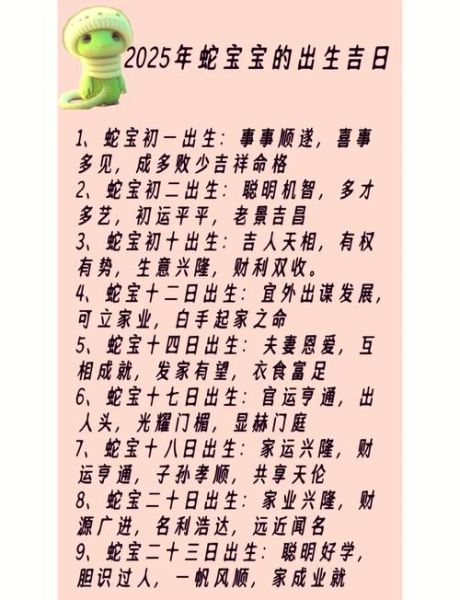 2025年蛇宝宝的出生吉日
1、蛇宝初一出生：事事顺遂，喜事
多见，成多败少吉祥命格
2、蛇宝初二出生：聪明机智，多才
多艺，初运平平，老景吉昌
3、蛇宝初十出生：吉人天相，有权
有势，生意兴隆，财利双收。
4、蛇宝十二日出生：宜外出谋发展，
可立家业，白手起家之命
5、蛇宝十四日出生：夫妻恩爱，互
相成就，发家有望，衣食富足
6、蛇宝十七日出生：官运亨通，出
人头，光耀门楣，显赫门庭
7、蛇宝十八日出生：家运兴隆，财
运亨通，子孙孝顺，共享天伦
8、蛇宝二十日出生：家业兴隆，财
源广进，名利浩达，远近闻名
9、蛇宝二十三日出生：聪明好学，
胆识过人，一帆风顺，家成业就